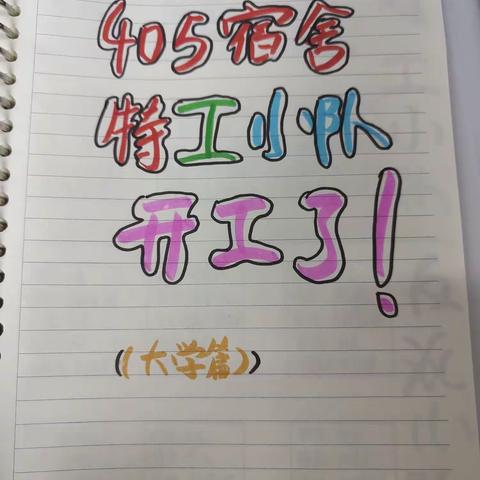 405宿舍
特工小队
开工了!
(大学篇)